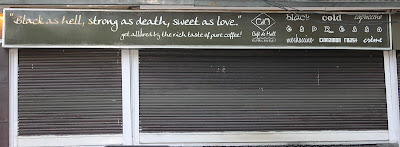 "Black as hell, strong as death, sweet as love."
get allured by the rich taste of pure coffee!
Café de Mall
black cold cappuccino
espresso
mochaccino crème